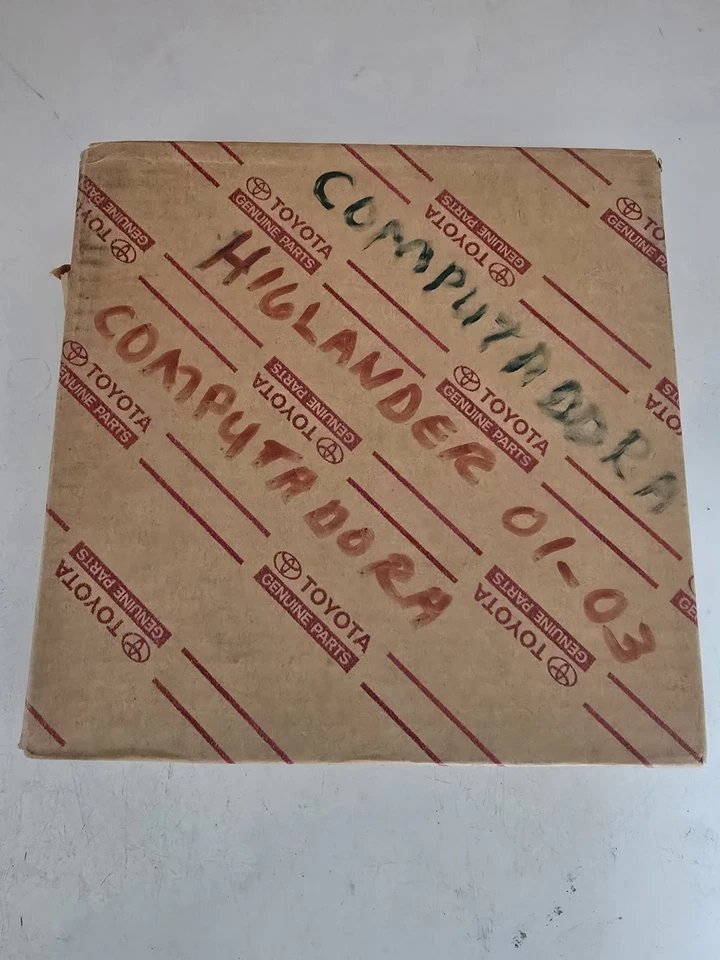 COMPUTADORA
HIGLANDER 01-03
COMPUTADORA
TOYOTA
GENUINE PARTS
TOYOTA
GENUINE PARTS
TOYOTA
GENUINE PARTS
TOYOTA
GENUINE PARTS
TOYOTA
GENUINE PARTS
TOYOTA
GENUINE PARTS
TOYOTA
GENUINE PARTS
TOYOTA
GENUINE PARTS
TOYOTA
GENUINE PARTS